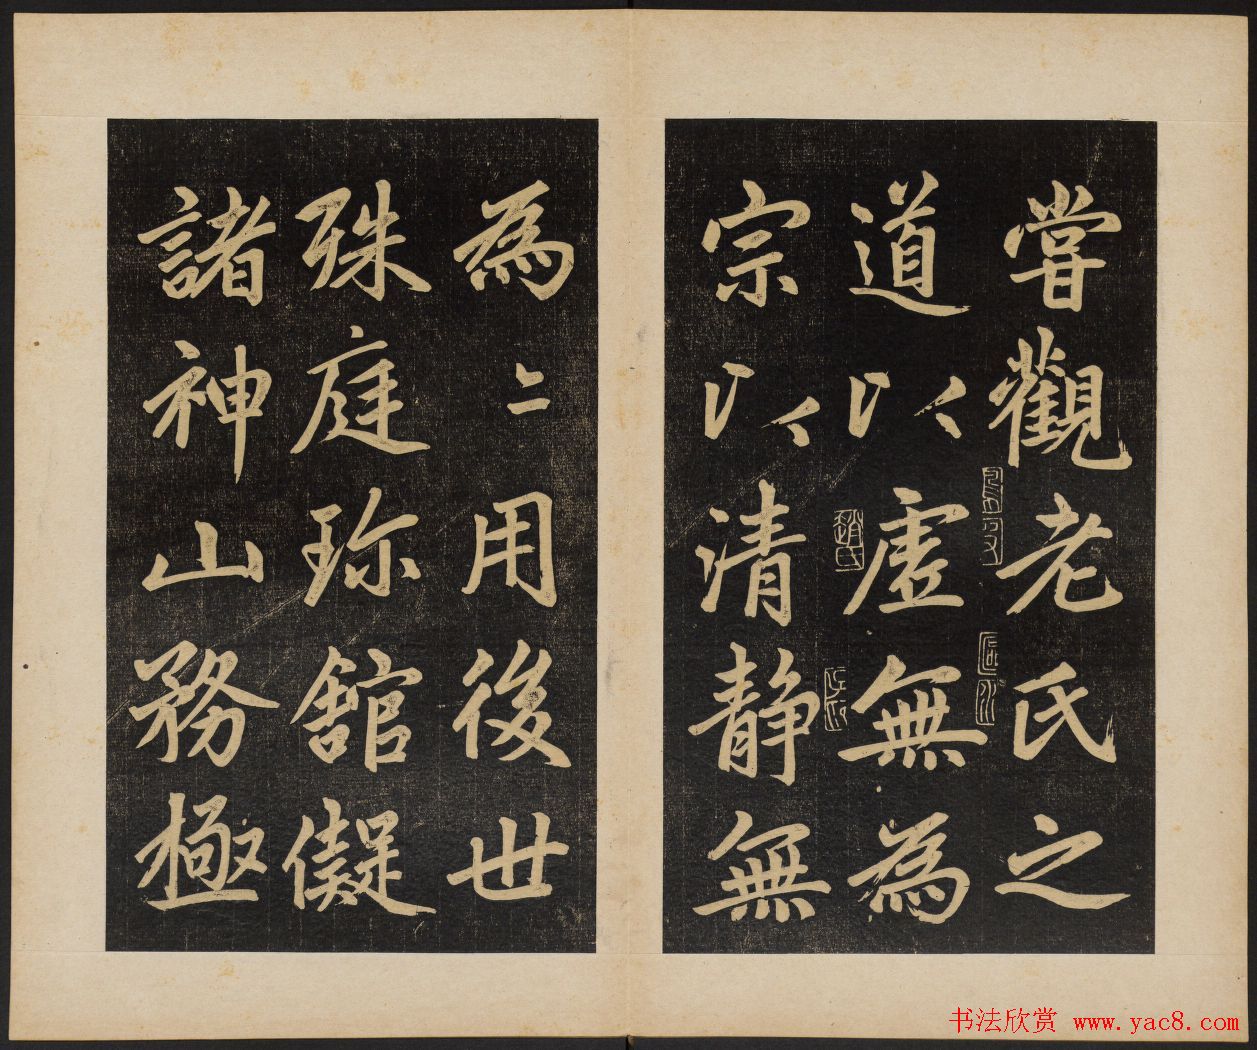 嘗觀老氏之
道以虛無為
宗以清静無
為〻用後世
殊庭珎舘儗
諸神山務極
趙氏
书法欣赏 www.yac8.com